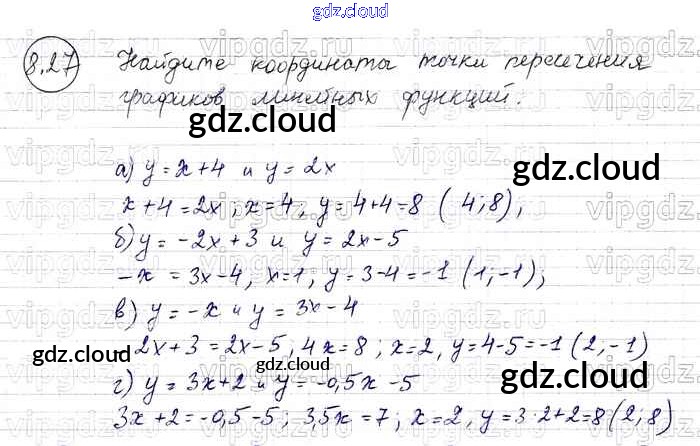 gdz.cloud
8.27 Найдите координаты точки пересечения
графиков линейных функций.
gdz.cloud
gdz.cloud
а) y = x + 4 и y = 2x
x + 4 = 2x ; x = 4 ; y = 4 + 4 = 8 ( 4 ; 8 ) ;
б) y = -2x + 3 и y = 2x - 5
-x = 3x - 4 , x = 1 ; y = 3 - 4 = -1 ( 1 ; -1 ) ;
в) y = -x и y = 3x - 4
2x + 3 = 2x - 5 ; 4x = 8 ; x = 2 , y = 4 - 5 = -1 ( 2 ; -1 )
gdz.cloud
gdz.cloud
г) y = 3x + 2 и y = -0,5x - 5
gdz.cloud
3x + 2 = -0,5 - 5 ; 3,5x = 7 ; x = 2 , y = 3 · 2 + 2 = 8 ( 2 ; 8 )